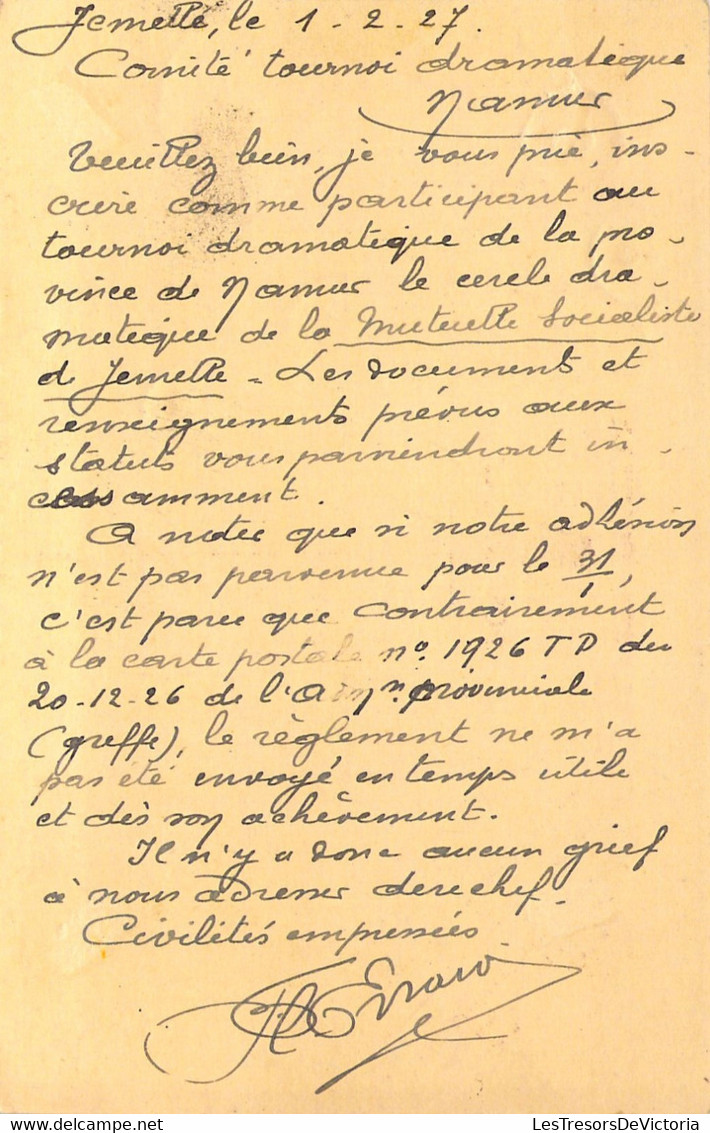 Jemelle, le 1-2-27.
Comité tournoi dramatique
Namur
Veuillez bien, je vous prie, ins-
crire comme participant au
tournoi dramatique de la pro-
vince de Namur le cercle dra-
matique de la Mutuelle Socialiste
de Jemelle - Les documents et
renseignements prévus aux
statuts vous parviendront in-
cessamment.
A noter que si notre adhésion
n'est pas parvenue pour le 31/1,
c'est parce que contrairement
à la carte postale n° 1926 TD du
20-12-26 de l'Admn. provinciale
(greffe), le règlement ne m'a
pas été envoyé en temps utile
et dès son achèvement.
Il n'y a donc aucun grief
à nous adresser derechef.
Civilités empressées
LesTresorsDeVictoria - delcampe.net